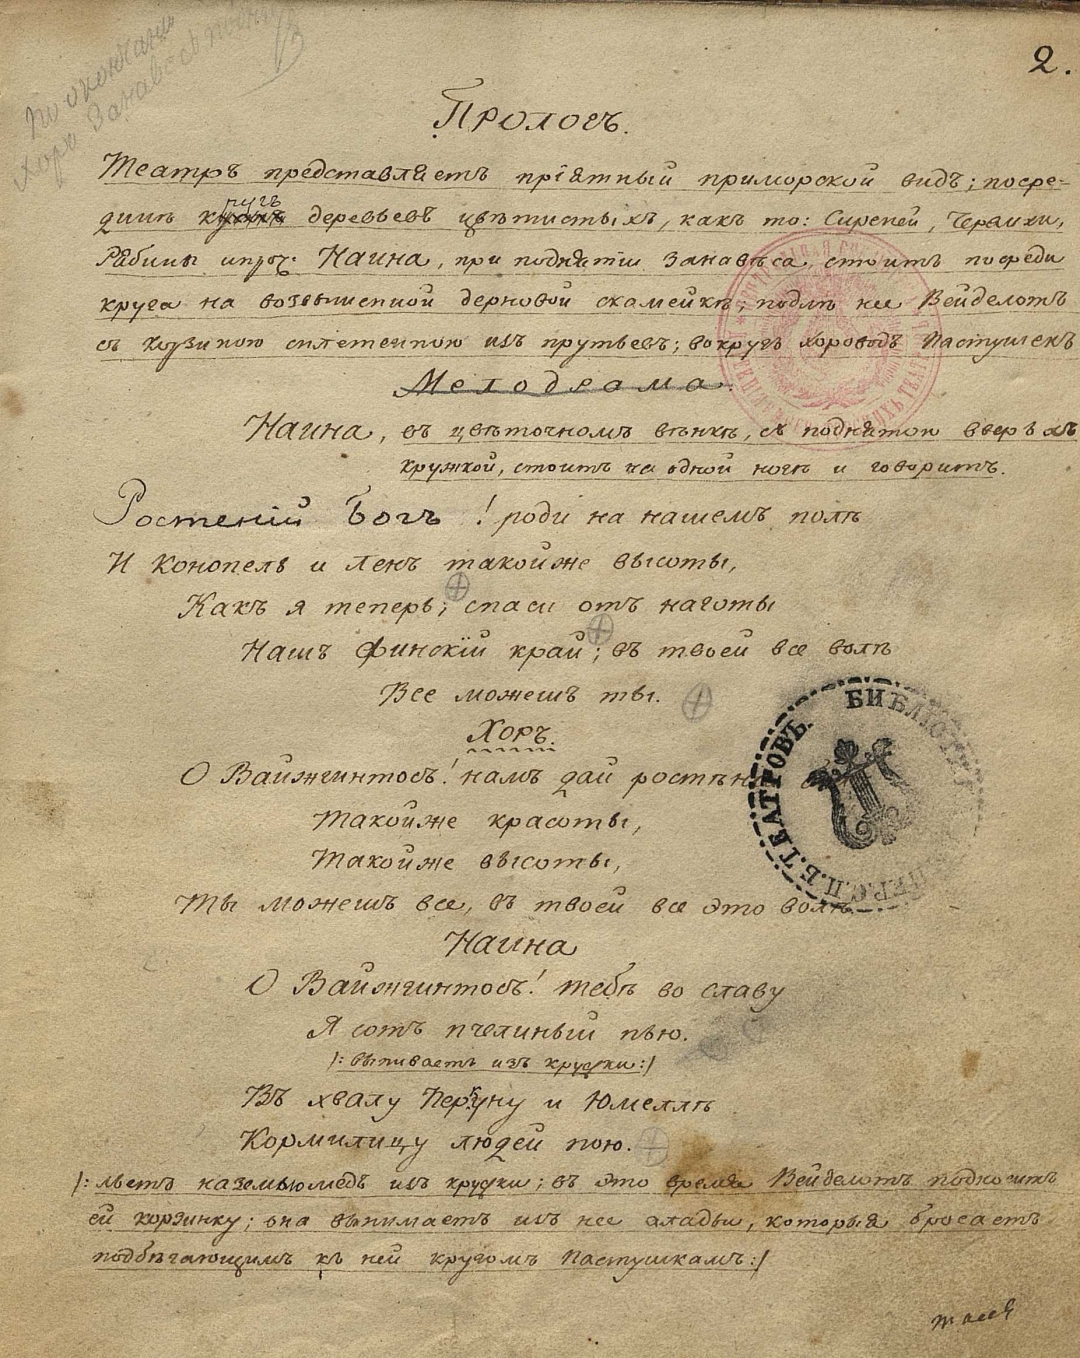 по окончании
Хора занавесъ
2.
Прологъ.
Театръ представляетъ прiятный приморской видъ; посре-
динѣ круга деревьевъ цвѣтистыхъ, какъ то: Сиреней, Черемхи,
Рябины и проч: Наина, при поднятiи занавѣса, стоитъ посреди
круга на возвышенной дерновой скамейкѣ; подлѣ нее Вейделотъ
съ корзиною сплетенною изъ прутьевъ; вокругъ хороводъ Пастушекъ
Мелодрама.
Наина, въ цвѣточномъ вѣнкѣ, съ поднятою вверьхъ
кружкой, стоитъ на одной ногѣ и говоритъ.
Ростенiй Богъ! роди на нашемъ полѣ
И конопель и Ленъ такойже высоты,
Какъ я теперь; спаси отъ наготы
Нашъ финскiй край; въ твоей все волѣ
Все можешъ ты.
Хоръ.
О Вайжгинтосъ! намъ дай ростѣнь
Такойже красоты,
Такойже высоты,
Ты можешъ все, въ твоей все это волѣ
Наина
О Вайжгинтосъ! тебѣ во славу
Я сотъ пчелиный пью.
/: выпиваетъ изъ кружки:/
Въ хвалу Перкуну и Юмеллѣ
Кормилицу людей пою.
/: льетъ наземлю медъ изъ кружки; въ это время Вейделотъ подноситъ
ей корзинку; она вынимаетъ изъ нее аладьи, которыя бросаетъ
подбѣгающимъ къ ней кругомъ Пастушкамъ:/
БИБЛIОТЕКА
ИМПЕР. С.П.Б. ТЕАТРОВЪ.